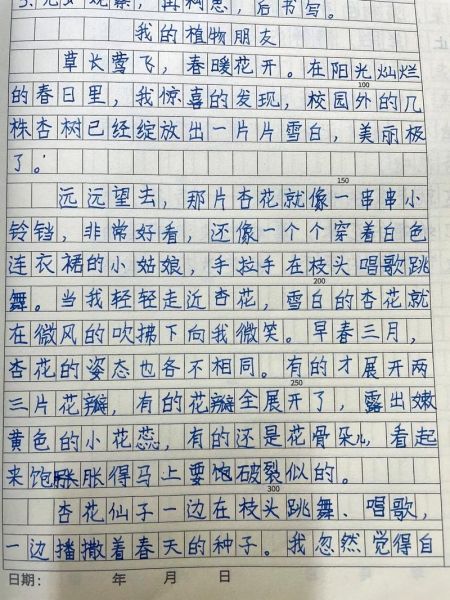 3、先女观察，再构思，后书写。
我的植物朋友
草长莺飞，春暖花开。在阳光灿烂
100
的春日里，我惊喜的发现，校园外的几
株杏树已经绽放出一片片雪白，美丽极
了。
150
远远望去，那片杏花就像一串串小
铃铛，非常好看，还像一个个穿着白色
连衣裙的小姑娘，手拉手在枝头唱歌跳
200
舞。当我轻轻走近杏花，雪白的杏花就
在微风的吹拂下向我微笑。早春三月，
杏花的姿态也各不相同。有的才展开两
250
三片花瓣，有的花瓣全展开了，露出嫩
黄色的小花蕊，有的还是花骨朵儿，看起
来饱胀胀得马上要饱破裂似的。
300
杏花仙子一边在枝头跳舞、唱歌，
一边播撒着春天的种子。我忽然觉得自
日期： 年 月 日